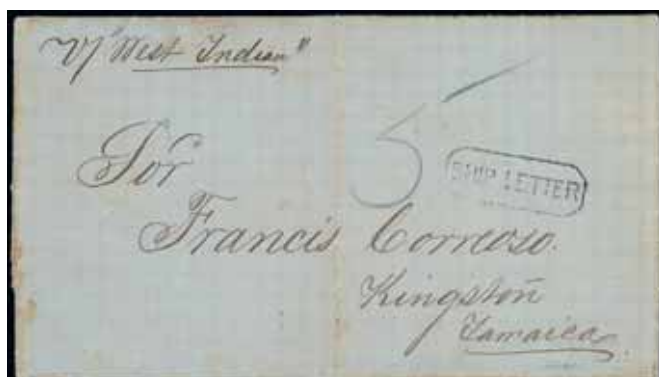 V/ "West Indian"
5
SHIP LETTER
Por
Francis Correoso.
Kingston
Jamaica